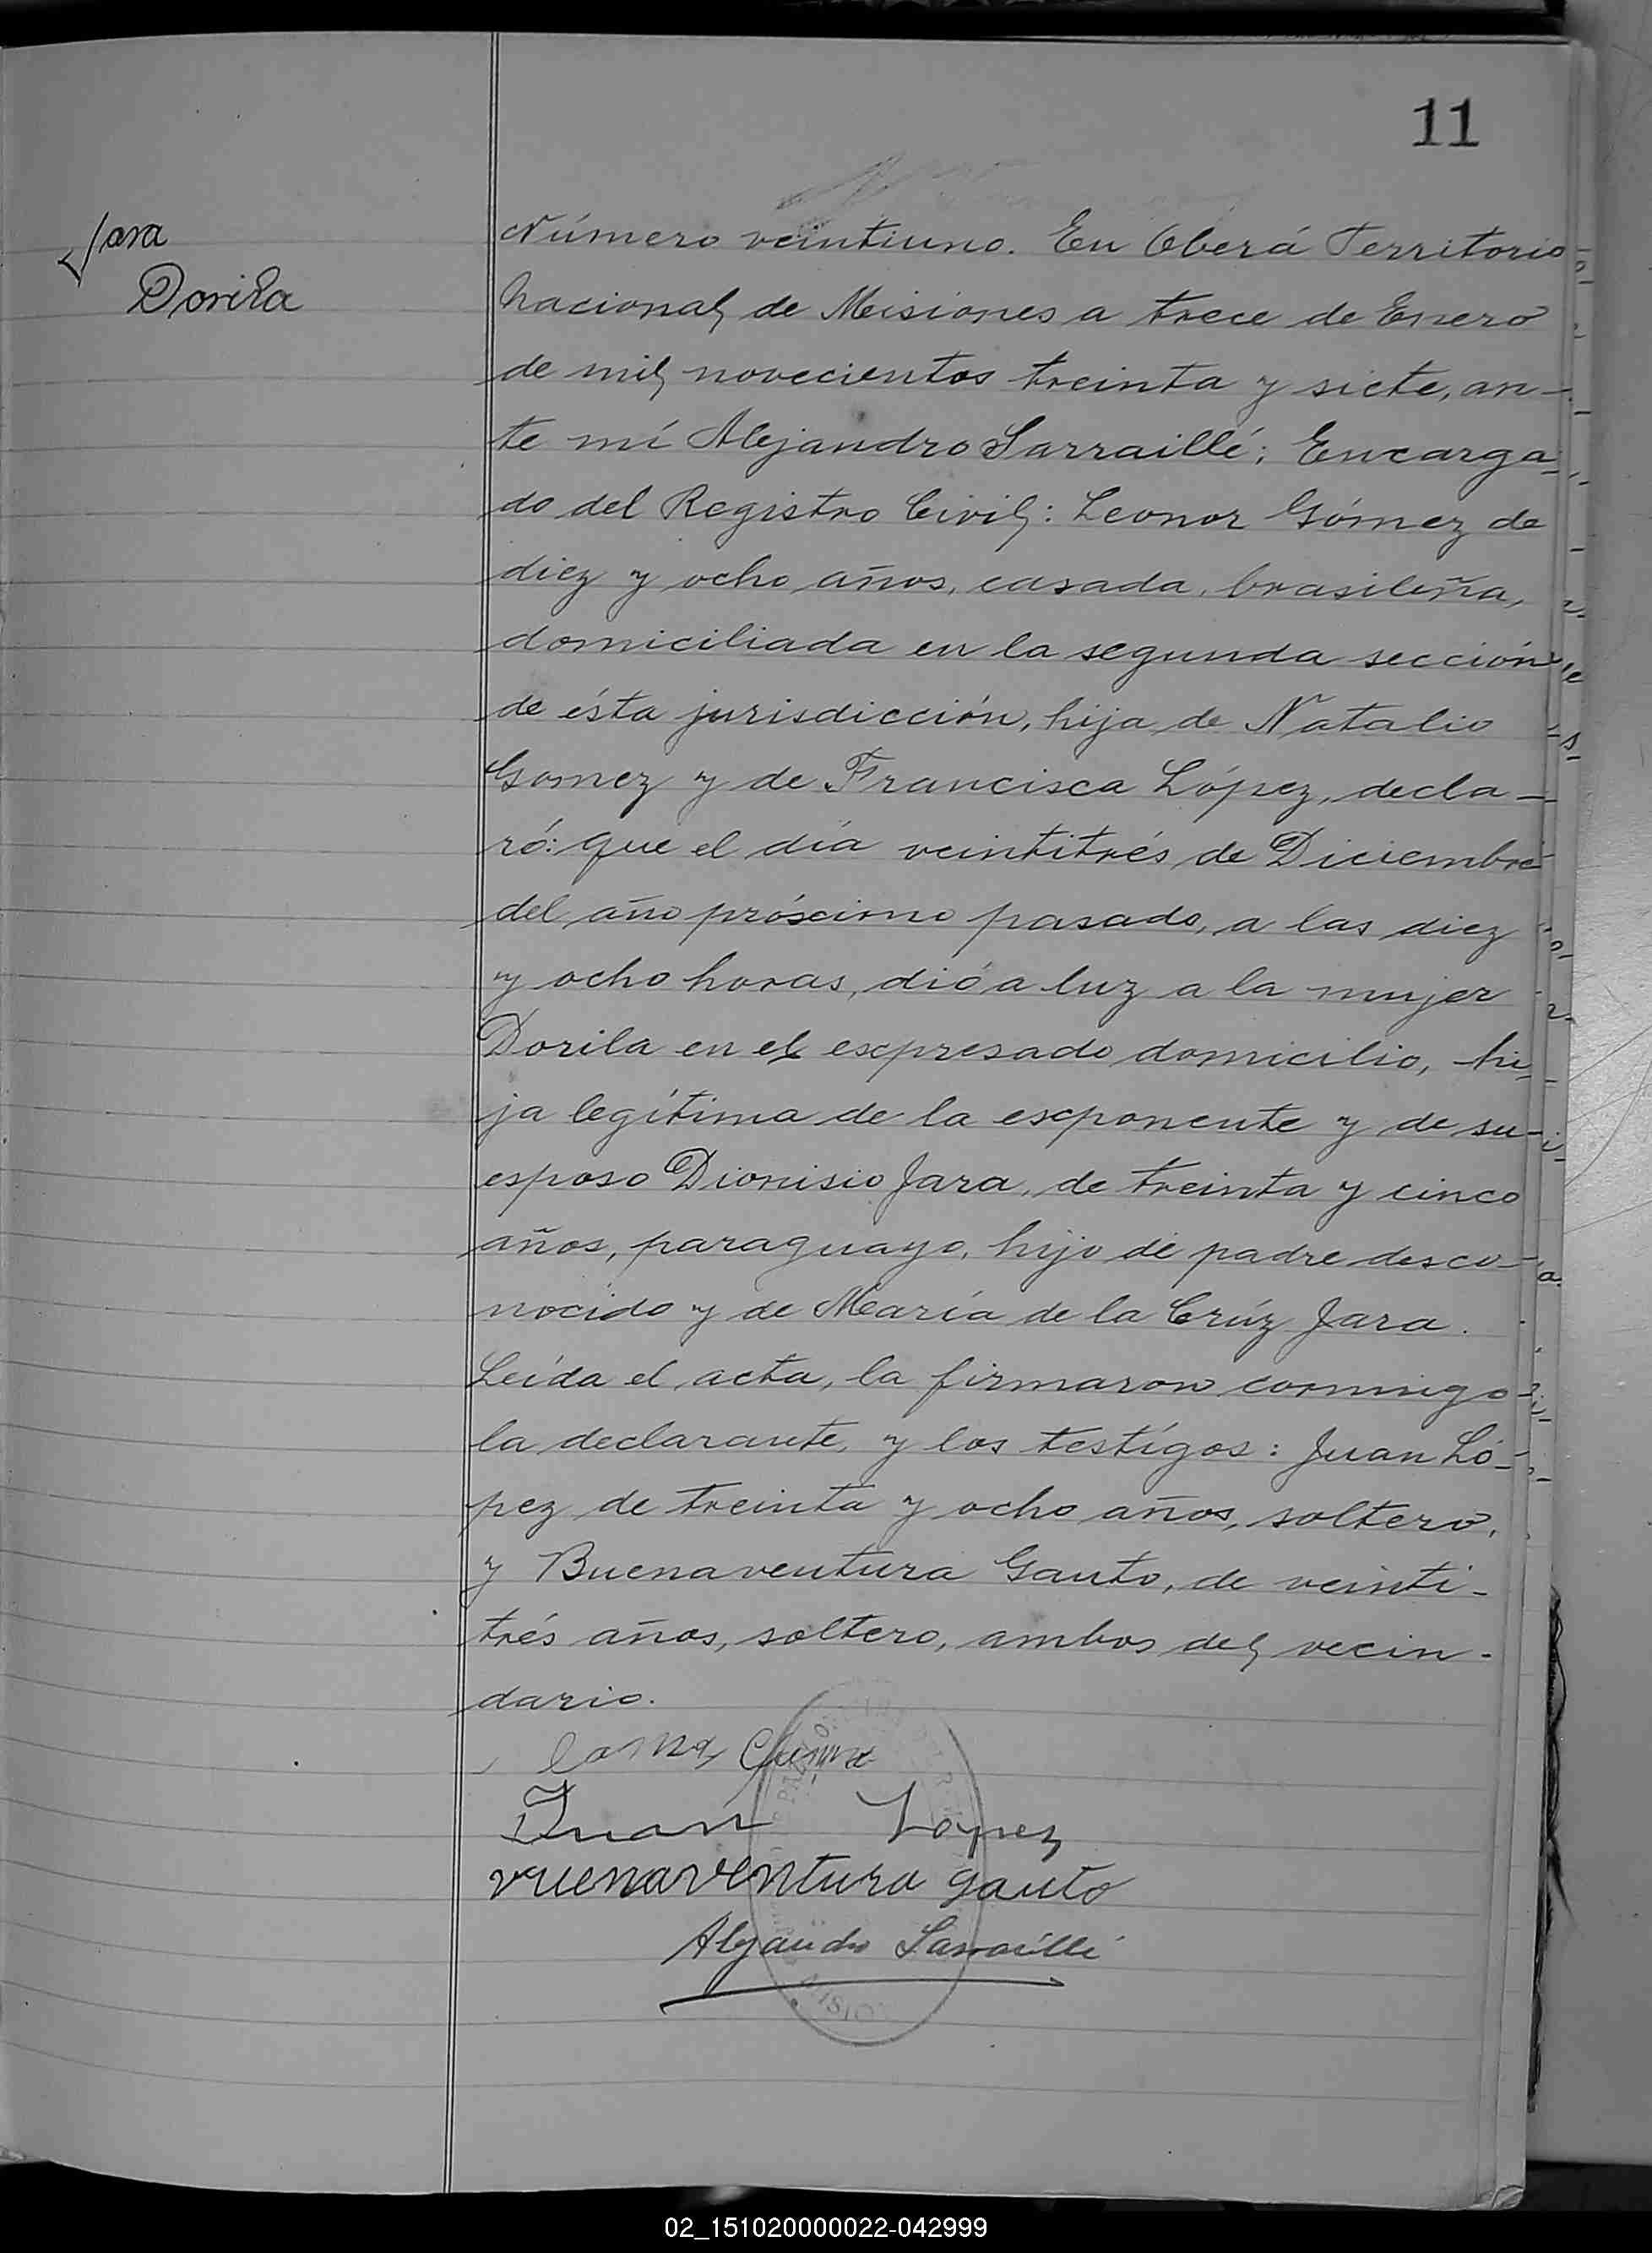 11
Jara
Dorila
Número veintiuno. En Oberá Territorio
Nacional de Misiones a trece de Enero
de mil novecientos treinta y siete, an-
te mí Alejandro Sarraillé; Encarga-
do del Registro Civil: Leonor Gómez de
diez y ocho años, casada, brasileña,
domiciliada en la segunda sección
de ésta jurisdicción, hija de Natalio
Gomez y de Francisca López, decla-
ró: que el día veintitrés de Diciembre
del año próximo pasado, a las diez
y ocho horas, dió a luz a la mujer
Dorila en el expresado domicilio, hi-
ja legítima de la exponente y de su
esposo Dionisio Jara, de treinta y cinco
años, paraguayo, hijo de padre desco-
nocido y de María de la Crúz Jara.
Leída el acta, la firmaron conmigo
la declarante, y los testígos: Juan Ló-
pez de treinta y ocho años, soltero,
y Buenaventura Gauto, de veinti-
trés años, soltero, ambos del vecin-
dario.
Juan Lopez
vuenaventura gauto
Alejandro Sarraillé
02_151020000022-042999